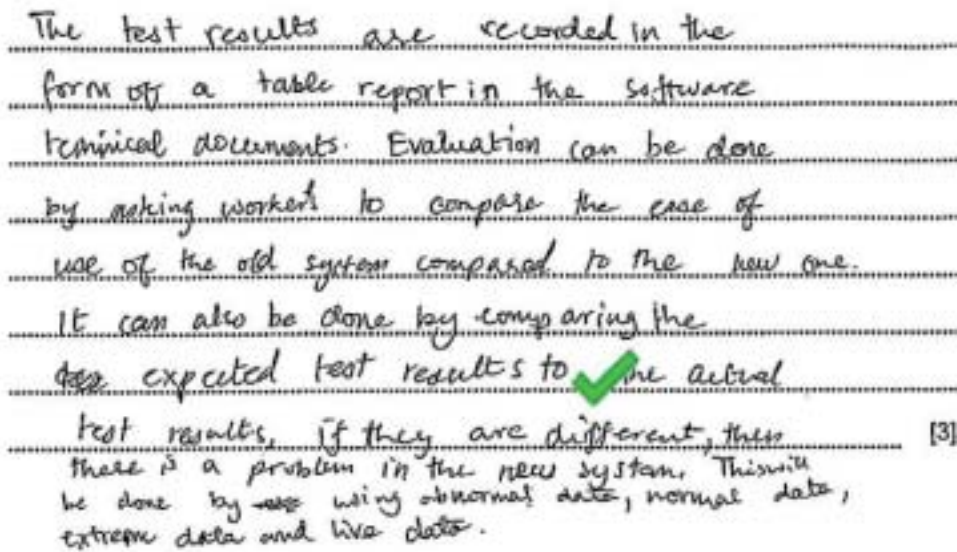 The test results are recorded in the
form of a table report in the software
technical documents. Evaluation can be done
by asking workers to compare the ease of
use of the old system compared to the new one.
It can also be done by comparing the
expected test results to the actual
test results, if they are different, then [3]
there is a problem in the new system. This will
be done by using abnormal data, normal data,
extreme data and live data.